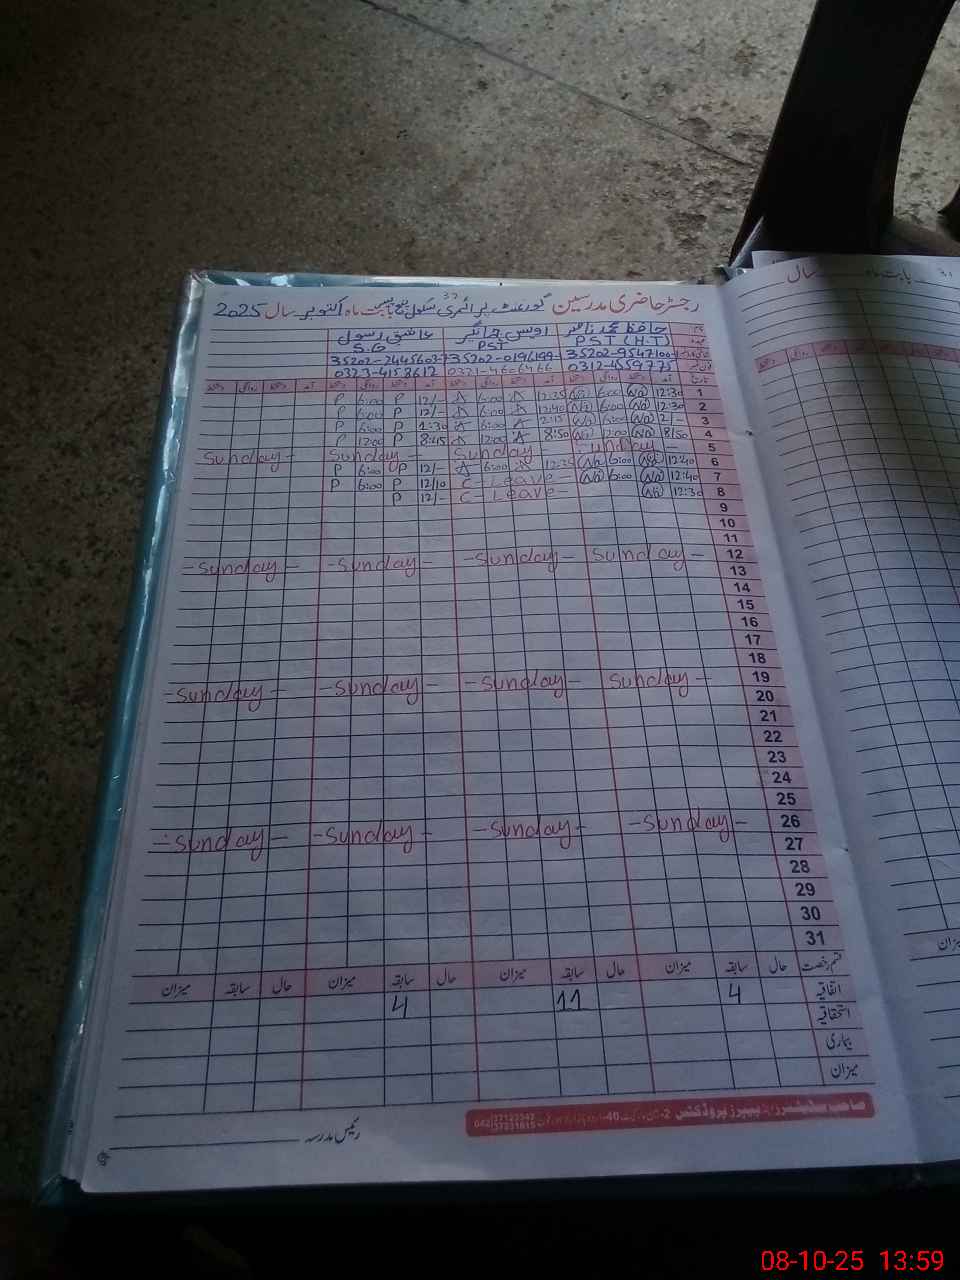 رجسٹر حاضری مدرسین گورنمنٹ پرائمری سکول بابت ماہ اکتوبر سال 2025
نام حافظ محمد ناصر اویس جہانگیر عاشق رسول
عہدہ PST (H.T) PST S.G
35202-2445603-7 35202-0196199- 35202-9547100-
0323-4158612 0321-460-6466 0312-4559775
تاریخ آمد دستخط روانگی دستخط آمد دستخط روانگی دستخط آمد دستخط روانگی دستخط آمد دستخط روانگی دستخط
P 6:00 P 12/- 6:00 12:35 6:00 12:30 1
P 6:00 P 12/- 6:00 12:40 6:00 12:30 2
P 6:00 P 1:30 6:00 2:15 6:00 2/- 3
P 12:00 P 8:45 12:00 8:50 12:00 8/50 4
Sunday - Sunday - Sunday - Sunday 5
P 6:00 P 12/- 6:00 12:25 6:00 12:40 6
P 6:00 P 12/10 C-Leave- 6:00 12:40 7
P 12/- C-Leave- 12:30 8
9
10
11
-Sunday- -Sunday- -Sunday- Sunday- 12
13
14
15
16
17
18
-Sunday- -Sunday- -Sunday- Sunday- 19
20
21
22
23
24
25
-Sunday- -Sunday- -Sunday- -Sunday- 26
27
28
29
30
31
قسم رخصت حال سابقہ میزان حال سابقہ میزان حال سابقہ میزان حال سابقہ میزان
اتفاقیہ 4 11 4
استحقاقیہ
بیماری
میزان
صاحب سٹیشنرز اینڈ پیپرز پروڈکٹس
042 37122342
37231615
رئیس مدرسہ
سال بابت ماہ
میزان
08-10-25 13:59